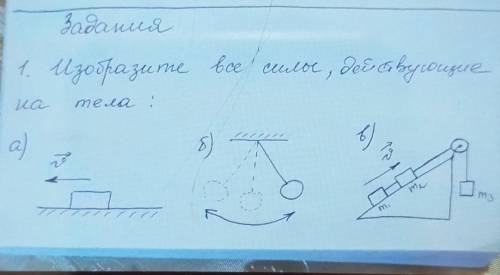 Задания
1. Изобразите все силы, действующие
на тела:
а) б) в)
v⃗ v⃗
m₁ m₂ m₃